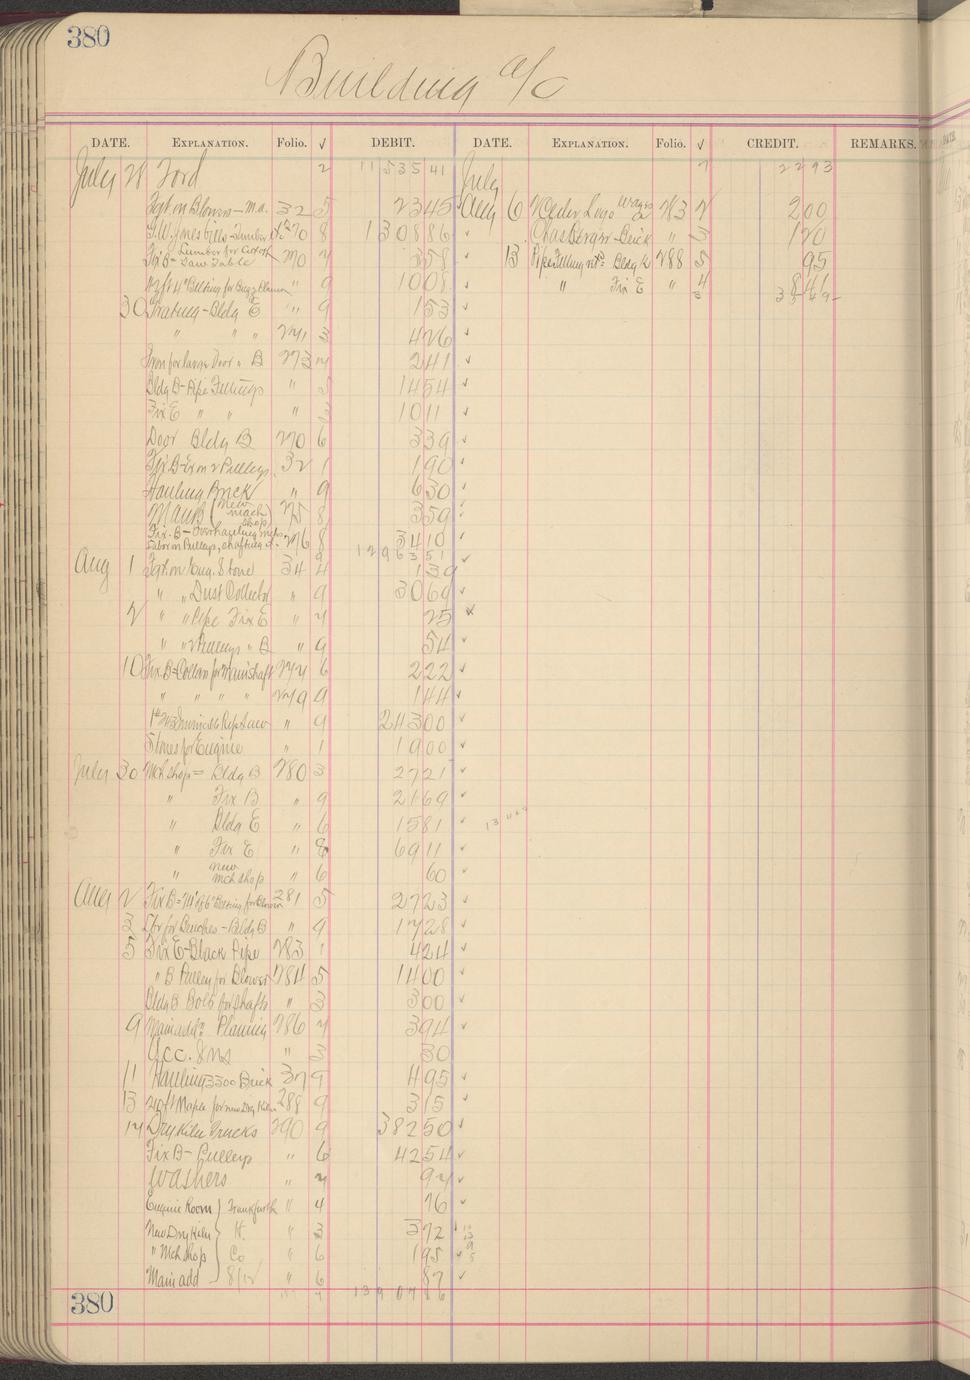 380
Building a/c
DATE. EXPLANATION. Folio. √ DEBIT. DATE. EXPLANATION. Folio. √ CREDIT. REMARKS.
July 28 Ford 2 11 535 41 July 7 22 93
Fgt. on Blowers - M.a. 32 5 23 45 Aug 6 283 2 00
8 1308 86 Chas Berger - Brick " 3 1 20
Fix B - Lumber for 270 3 58 13 Pipe Fitting Bldg B 288 5 95
Saw Table
4" Belting for " 9 10 08 " Fix E " 4 8 41
30 Grating - Bldg E " 9 1 53
" " " 271 3 4 26
Iron for large Door " B 273 2 41
Bldg B - Pipe Fittings " 5 14 54
Fix E " " " 3 10 11
Door Bldg B 270 6 3 39
Fix B - Ex on 2 Pulleys 32 1 1 90
Hauling Brick " 9 6 30
Main B (New mach shop) 275 8 3 59
Fix. B - Overhauling 276 8 34 10
Labor on Pulleys, shafting
12963 51
Aug 1 Fgt. on Eng. Stone 34 4 1 39
" " Dust Collector " 9 30 69
2 " " Pipe Fix E " 25
" " 2 Pulleys " B " 9 54
10 Fix. B - Collars for Mainshaft 277 6 2 22
" " " " 279 9 1 44
Rip Saw " 9 243 00
Stones for Engine " 1 19 00
July 30 Mch shop = Bldg B 280 3 27 21
" Fix B " 9 21 69
" Bldg E " 6 15 81
" Fix E " 8 69 11
" new mch shop " 6 60
Aug 2 Fix B = 6" Belting for Blower 281 5 27 23
3 for Benches - Bldg B " 9 17 28
5 Fix E - Black Pipe 283 1 4 24
" B Pulley for Blower 284 5 14 00
Bldg B Bolts for Shafts " 3 3 00
9 Main add. Planing 286 3 94
" 3 30
11 Hauling 3300 Brick 37 9 4 95
13 Maple for new Dry Kiln 288 9 3 15
17 Dry Kiln Trucks 290 9 382 50
Fix B - Pulleys " 6 42 54
Washers "
Engine Room } Frankfurth " 4 76
New Dry Kiln } H. " 3 3 72
" Mch shop } Co " 6 1 95
Main add } 8/12 " 6 87
380